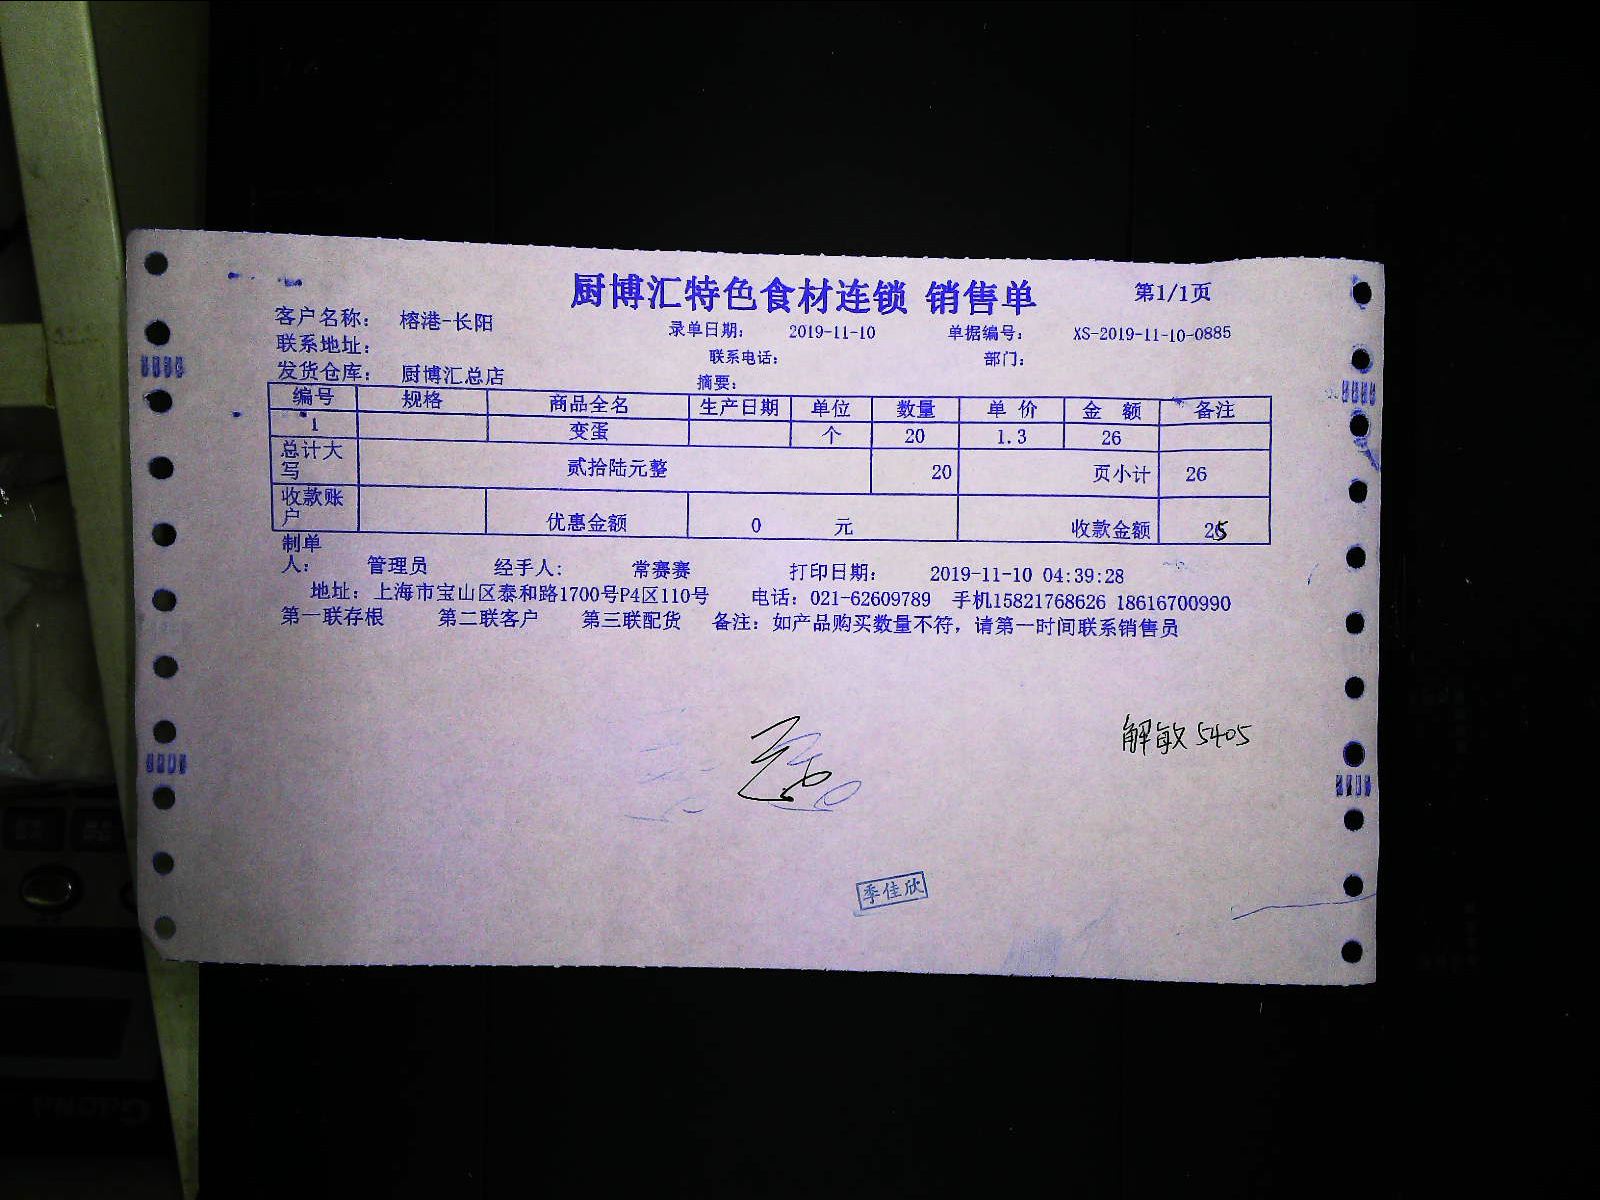 厨博汇特色食材连锁 销售单 第1/1页
客户名称： 榕港-长阳 录单日期： 2019-11-10 单据编号： XS-2019-11-10-0885
联系地址： 联系电话： 部门：
发货仓库： 厨博汇总店 摘要：
编号 规格 商品全名 生产日期 单位 数量 单 价 金 额 备注
1 变蛋 个 20 1.3 26
总计大写 贰拾陆元整 20 页小计 26
收款账户 优惠金额 0 元 收款金额 25
制单人： 管理员 经手人： 常赛赛 打印日期： 2019-11-10 04:39:28
地址：上海市宝山区泰和路1700号P4区110号 电话：021-62609789 手机15821768626 18616700990
第一联存根 第二联客户 第三联配货 备注：如产品购买数量不符，请第一时间联系销售员
解敏 5405
季佳欣